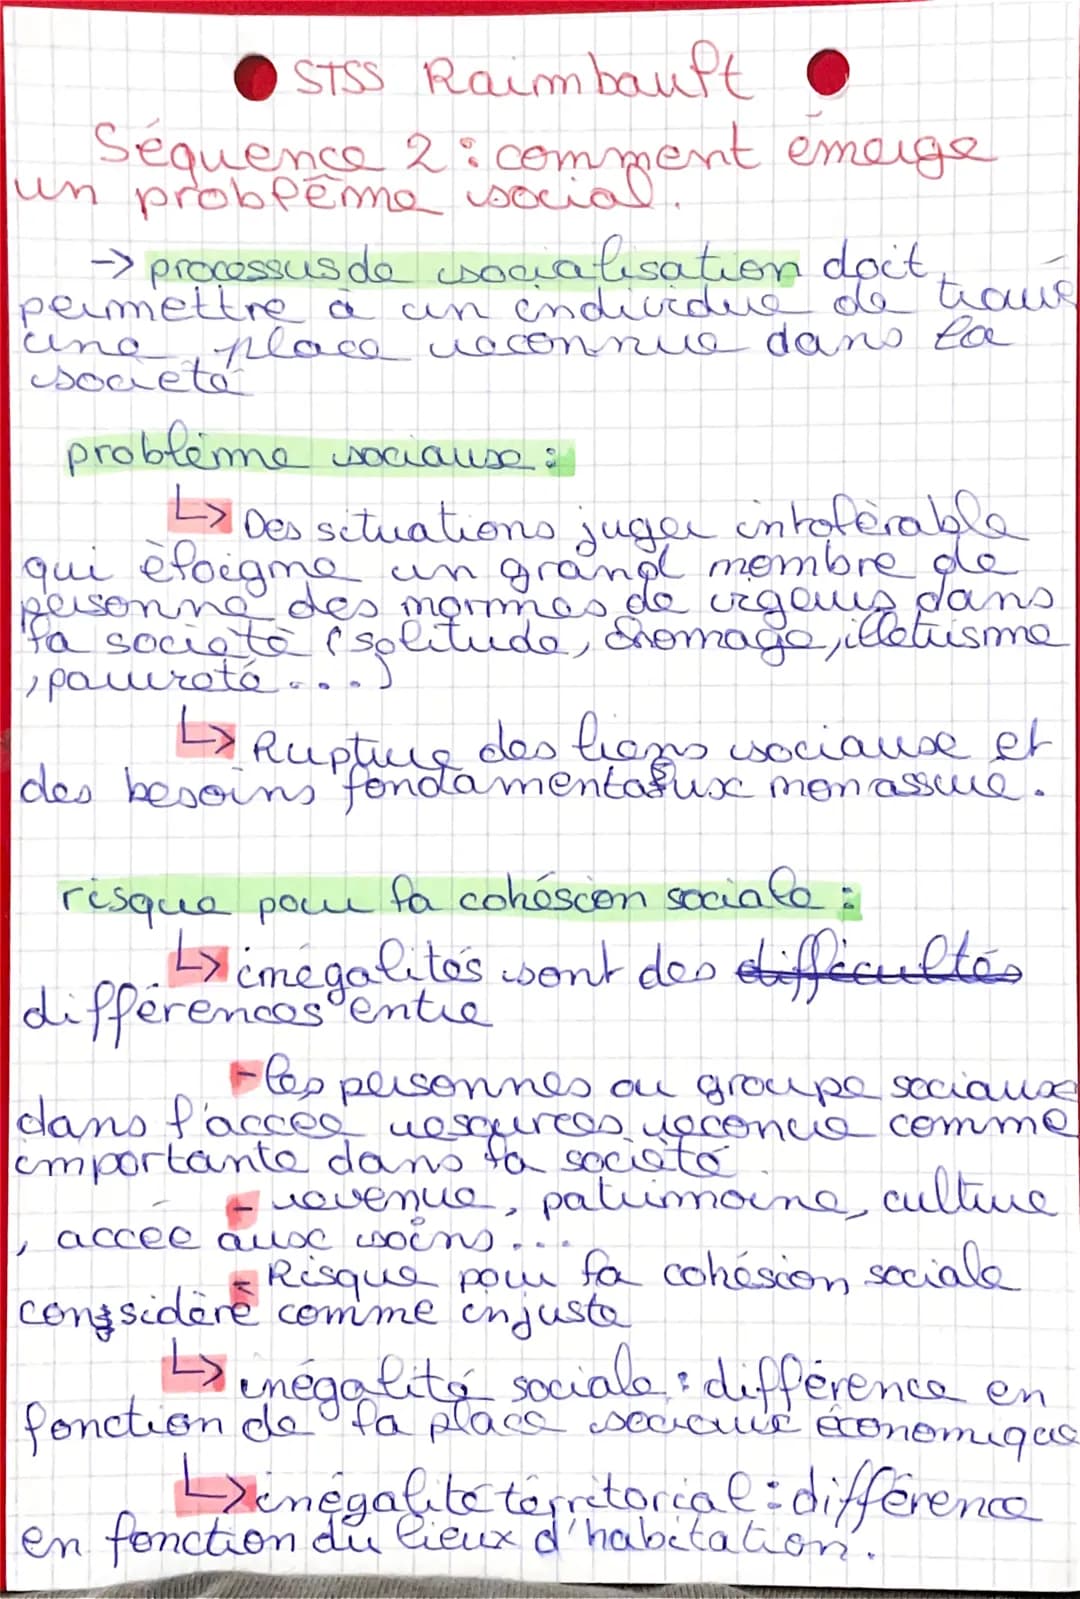 STSS Raimbault
Séquence 2 : comment émerge
un problème social.
-> processus de socialisation doit
permettre à un individue de trouve
une place reconnue dans la
societé
problème sociause :
↳ Des situations juger intolèrable
qui èloigne un grand nombre de
personne des normes de vigeurs dans
la societé (solitude, chomage, illetrisme
, pauvreté ...)
↳ Rupture des liens sociause et
des besoins fondamentaux non assure.
risque pour la cohéscion sociale :
↳ inégalités sont des difficultés
différences entre
- les personnes ou groupe sociaux
dans l'accee resources reconue comme
importante dans la societé
- revenue, patrimoine, culture
, accée ause soins ...
- Risque pour la cohéscion sociale
consideré comme injuste
↳ inégalité sociale : différence en
fonction de la place sociaux économique
↳ inégalité térritorial : différence
en fonction du lieux d'habitation.